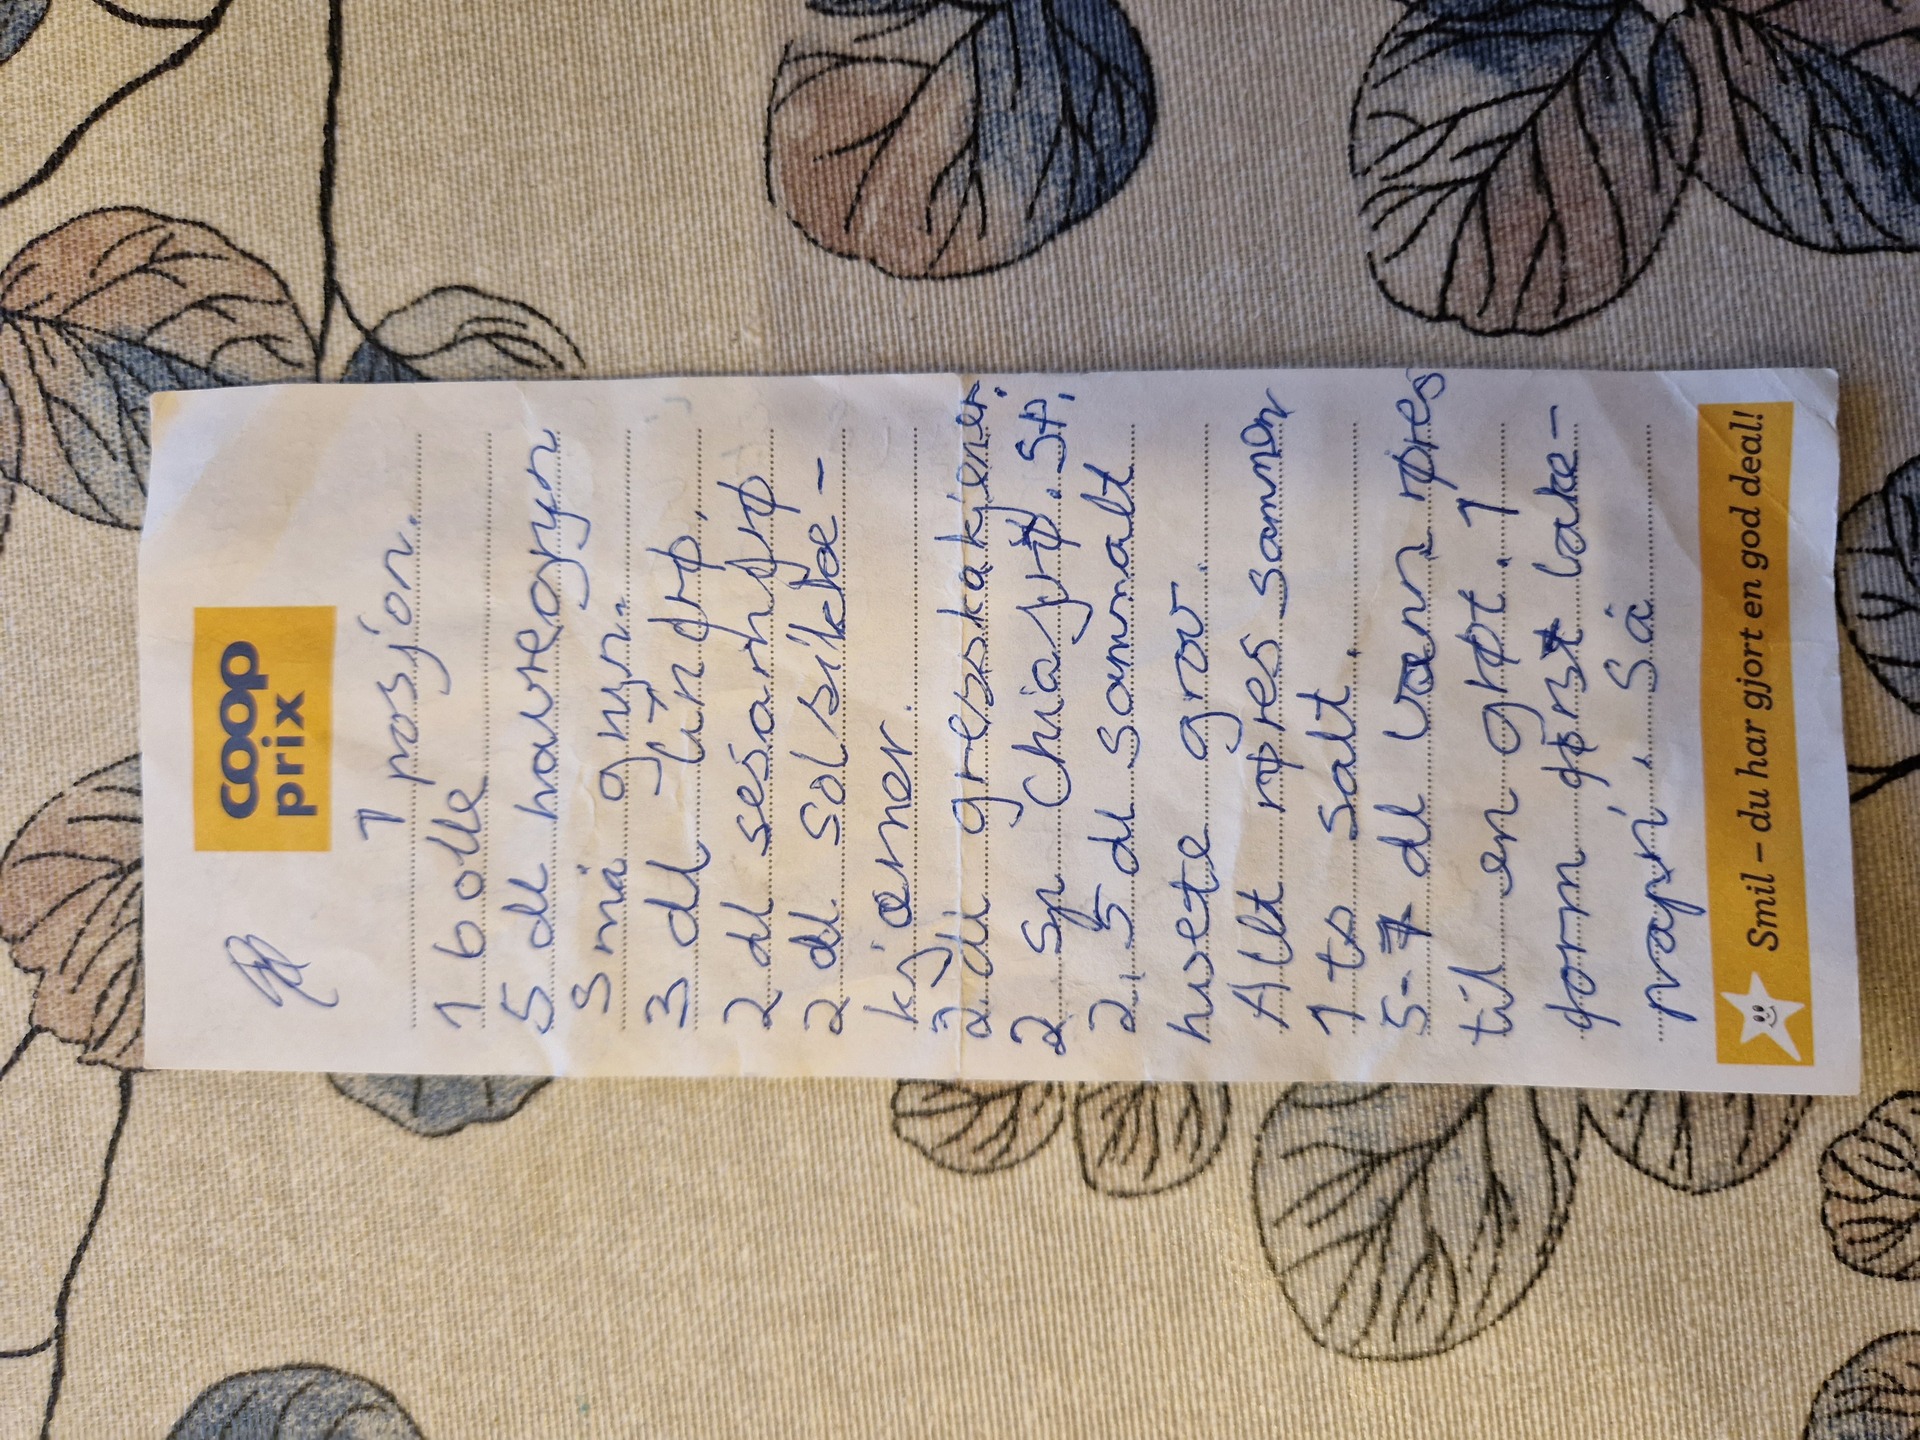 coop
prix
1 posjon.
1 bolle
5 dl havregryn
Små gryn.
3 dl linfrø.
2 dl sesamfrø
2 dl. solsikke-
kjærner.
2. dl gresskakjener.
2 sp Chiafrø. sp.
2,5 dl sammalt
hvete grov.
Allt røres sammen
1 ts salt.
5-7 dl vann røres
til en grøt. 1
form først bake-
papri. Så
Smil – du har gjort en god deal!